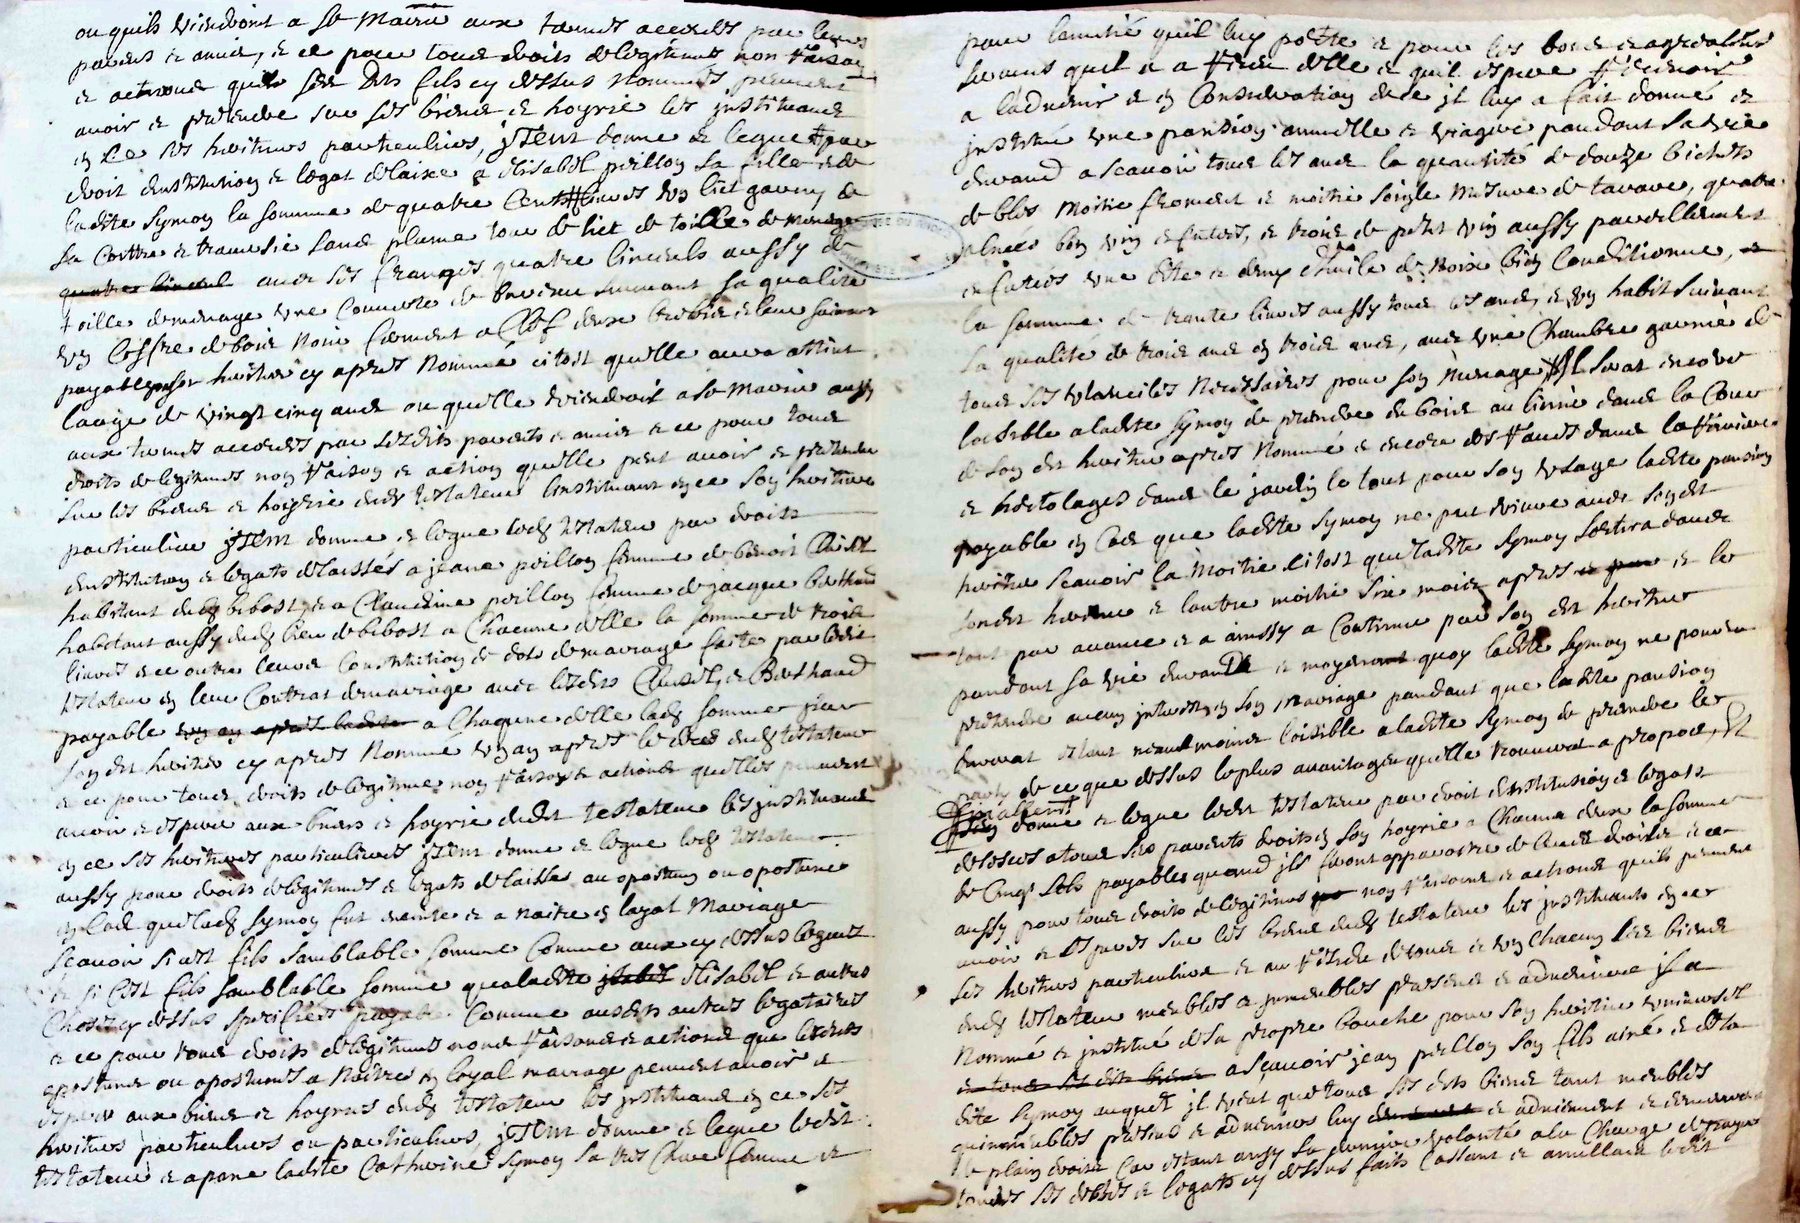 ou quils viendront a se marier aux termes accordes par leurs
parens et amis, et ce pour tous droits de legitimes nom raison
et actions quils ses dits fils cy dessus nommés peuvent
avoir et pretendre sur ses biens et hoyrie les instituant
en ce ses heritiers particuliers, jtem donne et legue par
droit dinstitution et legat delaixe a Elisabet peillon sa fille et de
ladite Symon la somme de quatre cents livres un liet garny de
sa coittre et traversié sans plume tour de liet de toille de menage
quatre linceul avec ses franges quatre linceuls aussy de
toille de menage une couverte de suivant sa qualité
un coffre de bois noir fermant a Clef deux brebis et leur suivant
payable par son heritier cy apres nommé sitost quelle aura attint
laage de vingt cinq ans ou quelle viendroit a se marier aussy
aux termes accordes par sesdits parents et amis et ce pour tous
droits de legitimes nom raison et action quelle peut avoir et pretendre
sur les biens et hoyrie dudt testateur linstituant en ce son heritiere
particuliere jtem donne et legue ledt testateur par droit
dinstitution et legats delaissés a jeane peillon femme de benoit
habitant dudt bibost, et a Claudine peillon femme de jacque Berthaud
habitant aussy dudt lieu de bibost a Chacune delle la somme de trois
livres et ce outre leurs Constitution de dot de mariage faite par ledit
testateur en leur Contrat de mariage avec lesdits et Berthaud
payable un an apres ladite a Chaqune delle ladt somme par
son dit heritier cy apres nommé un an apres le deces dudt testateur
et ce pour tous droits de legitimes nom raison et actions quelles peuvent
avoir et espere aux biens et hoyrie dudit testateur les instituant
en ce ses heritieres particulieres jtem donne et legue ledt testateur
aussy pour droits de legitimes et legats delaisses au opostume ou opostume
en cas que ladt Symon fut enceinte et a naitre en loyal Mariage
Scavoir si cest fils semblable somme comme aux cy dessus legués
et si cest fille semblable somme qua ladite jsabel Elisabet et autres
Choses cy dessus specifiées payable comme ausdits autres legataires
et ce pour tous droits de legitimes noms raisons et actions que lesdits
opostumes ou opostumes a naitre en loyal mariage peuvent avoir et
espere aux biens et hoyries dudt testateur les instituant en ce ses
heritiers particuliers ou particulieres, jtem donne et legue ledit
testateur et a pane ladite Catherine Symon sa tres Chere femme et
pour lamitié quil luy porte et pour les bons et agreables
services quil en a tirée delle et quil espere tirer
a ladvenir et en Consideration de ce jl luy a fait donné et
jnstitué une pension annuelle et viagere pendant sa vie
durand a scavoir tous les ans la quantité de douze bichets
de bled moitié froment et moitié soigle mesure de tarare, quatre
anées bon vin et futées, et trois de petit vin aussy pareillement
en futées une ette et demy dhuile de noix bien Conditionné, et
la somme de trante livres aussy tous les ans, et un habit suivant
sa qualité de trois ans en trois ans, avec une Chambre garnie de
tous ses utanciles necessaires pour son menage jl serat encore
loisible a ladite Symon de prendre du bois au linié dans la Cour
de son dit heritier apres nommé et encore des dans
et hortolages dans le jardin le tout pour son usage ladite pansion
payable en cas que ladite Symon ne put vivre avec son dit
heritier scavoir la moitié sitost que ladite Symon sortira davec
sondit heritier et lautre moitié six mois apres et pour et le
tout par avance et a ainssy a Continuer par son dit heritier
pendant sa vie durante et moyennant quoy ladite Symon ne pourra
pretendre aucun jnterest en son mariage pendant que ladite pansion
durerat estant neanmoins loisible a ladite Symon de prendre le
party de ce que dessus le plus avantageux quelle trouverat a propos, Et
finallemt
jtem donne et legue ledit testateur par droit dinstitution et legats
delaisés a tous ses parents droits en son hoyrie a Chacun deux la somme
de Cinqt Sols payables quand jls feront apparoitre de leurs droits et ce
aussy pour tous droits de legitimes nom raisons et actions quils peuvent
avoir et esperés sur les biens dudt testateur les jnstituants en ce
ses heritiers particuliers et au residu de tous et un Chacun ses biens
dudt testateur meubles et jmmeubles presens et advenir jl a
Nommé et jnstitué de sa propre bouche pour son heritier universel
et tous ses dits biens a scavoir jean peillon son fils ainé et de la
dite Symon auquel jl veut que tous ses dits biens tant meubles
quimmeubles presens et advenirs luy et adviennent et demeurent
de plain droit Car estant aussy sa derniere volonté a la Charge de payer
toutes ses debtes et legats cy dessus faits Cassant et annullant ledit